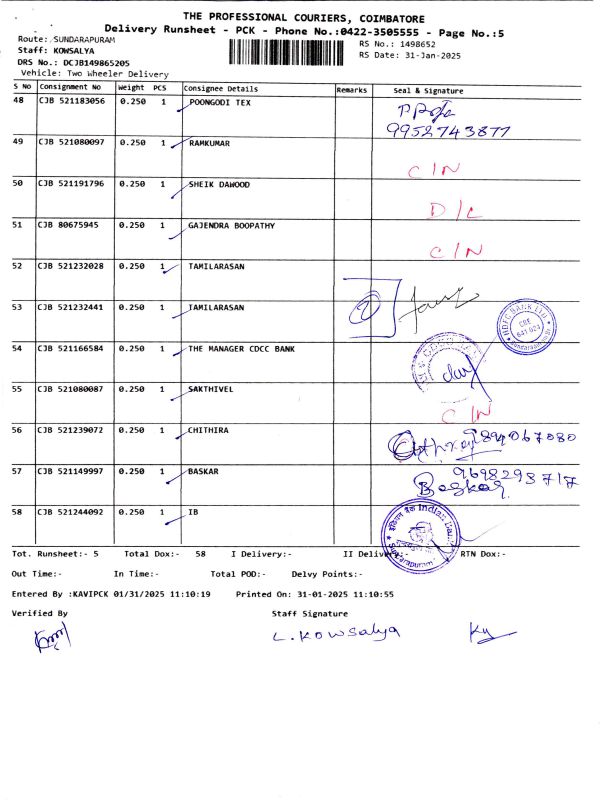 THE PROFESSIONAL COURIERS, COIMBATORE
Delivery Runsheet - PCK - Phone No.:0422-3505555 - Page No.:5
Route: SUNDARAPURAM
RS No.: 1498652
Staff: KOWSALYA
RS Date: 31-Jan-2025
DRS No.: DCJB149865205
Vehicle: Two Wheeler Delivery
S No Consignment No Weight PCS Consignee Details Remarks Seal & Signature
48 CJB 521183056 0.250 1 POONGODI TEX
9952743877
49 CJB 521080097 0.250 1 RAMKUMAR
C/N
50 CJB 521191796 0.250 1 SHEIK DAWOOD
D/L
51 CJB 80675945 0.250 1 GAJENDRA BOOPATHY
C/N
52 CJB 521232028 0.250 1 TAMILARASAN
53 CJB 521232441 0.250 1 TAMILARASAN
HDFC BANK LTD
CBE
641 024
Sundarapuram
54 CJB 521166584 0.250 1 THE MANAGER CDCC BANK
55 CJB 521080087 0.250 1 SAKTHIVEL
C/N
56 CJB 521239072 0.250 1 CHITHIRA
57 CJB 521149997 0.250 1 BASKAR
9698298717
Baskar
58 CJB 521244092 0.250 1 IB
इंडियन बैंक Indian Bank
Sundarapuram
Tot. Runsheet:- 5 Total Dox:- 58 I Delivery:- II Delivery:- RTN Dox:-
Out Time:- In Time:- Total POD:- Delvy Points:-
Entered By :KAVIPCK 01/31/2025 11:10:19 Printed On: 31-01-2025 11:10:55
Verified By Staff Signature
L. Kowsalya